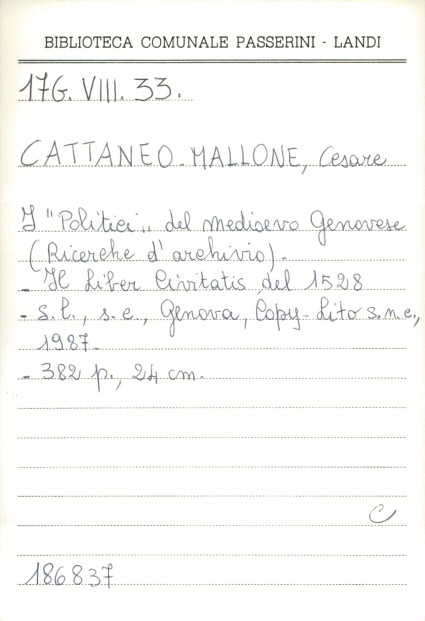 BIBLIOTECA COMUNALE PASSERINI - LANDI
17G. VIII. 33.
CATTANEO-MALLONE, Cesare
I "Politici" del medioevo Genovese
(Ricerche d'archivio).
- Il Liber Civitatis del 1528
- S.l., s.e., Genova, Copy-Lito s.n.c.,
1987.
- 382 p., 24 cm.
C
186837